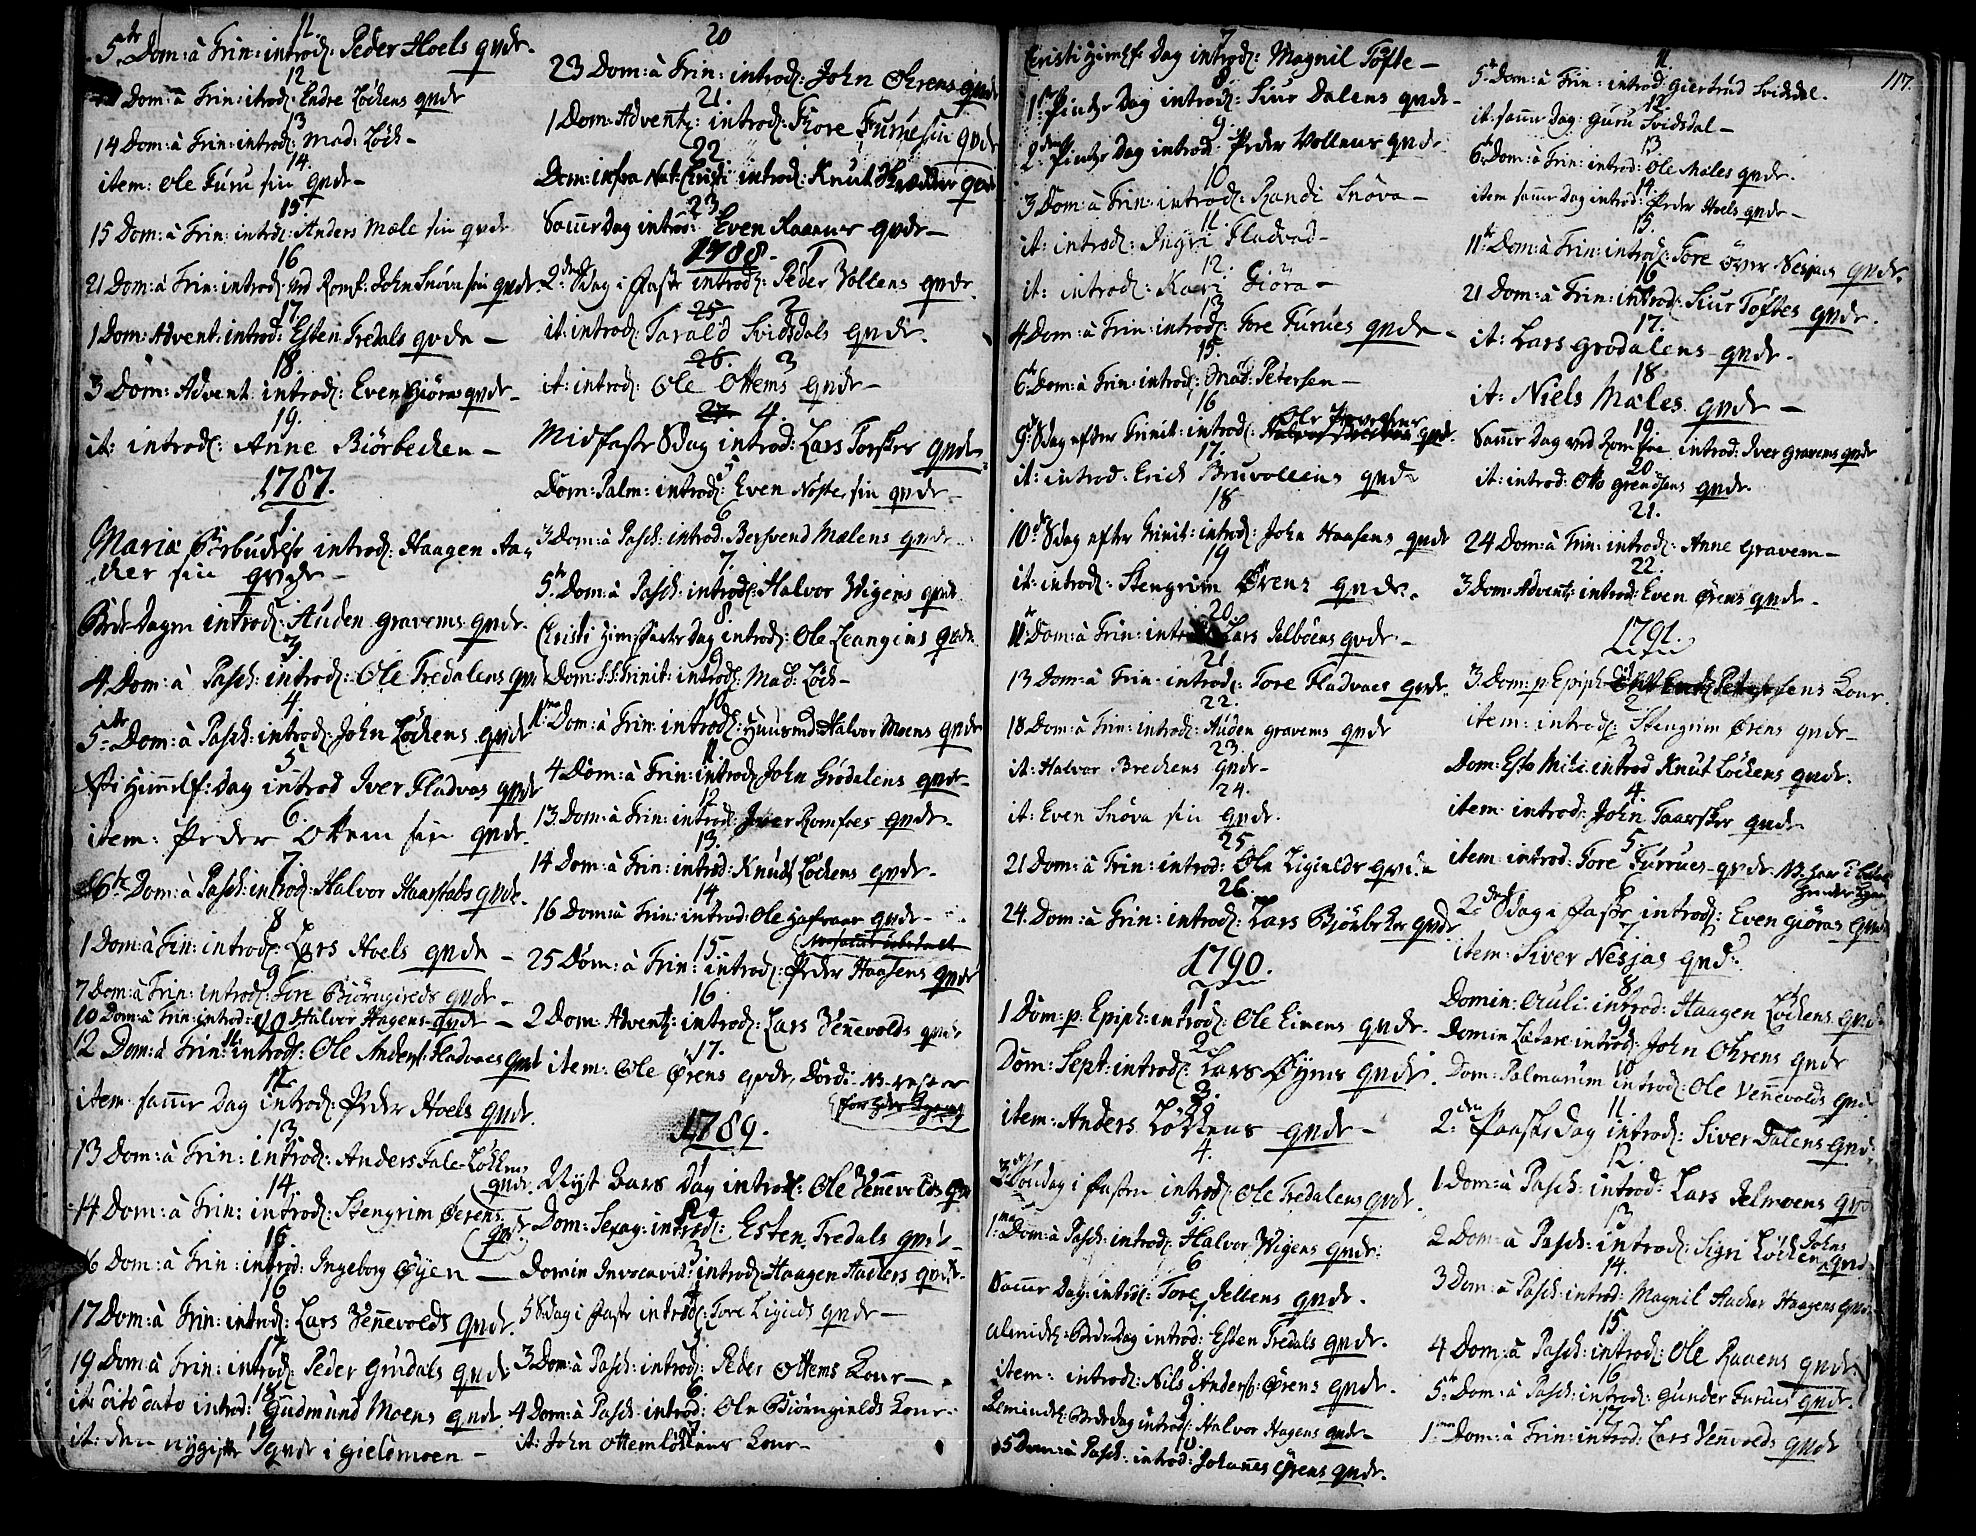 11.
5te Dom: à Trin: introd: Peder Hoels qvdr.
12
Dom: à Trin: itrod: Endre Löckens qvdr
13
14 Dom: à Trin: introd: Mad: Löck -
14.
item: Ole Furu sin qvdr -
15.
15 Dom: à Trin: introd: Anders Mæle sin qvdr
16
21 Dom: à Trin: introd: ved Romf: John Snöva sin qvdr
17.
1 Dom: Advent: introd: Esten Fredals qvdr -
18.
3 Dom: Advent introd: Even Giöras qvdr -
19.
it: introd: Anne Biörbecken -
1787.
1
Mariæ introd: Haagen Aa-
cker sin qvdr -
2
Dagen introd: Auden gravems qvdr.
3
4 Dom: à Pasch: introd: Ole Fredalens qvdr
4.
5te Dom: à Pasch: introd: John Löckens qvdr
5
Himmelf: Dag introd Iver Fladvas qvdr
6.
item: Peder Ottem sin qvdr.
7
6te Dom: à Pasch: introd: Halvor Haarstads qvdr.
8
1 Dom: à Trin: introd: Lars Hoels qvdr -
9
7 Dom: à Trin: introd: Tore Biörngieeds qvdr -
10 Dom: à Trin: introd: 10 Halvor Hagens qvdr -
11
12 Dom: à Trin: introd: Ole Anders: Fladvaes qvdr
12
item samme Dag introd: Peder Hoels qvdr.
13
13 Dom: à Trin: introd: Anders Löckens
qvdr.
14
14 Dom: à Trin: introd: Stengrim Öerens
qvdr
15
16 Dom: à Trin: introd: Ingeborg Öyen -
16
17 Dom: à Trin: introd: Lars Vennevolds qvdr.
17
19 Dom: à Trin: introd: Peder Grödals qvdr
18
it: dito dato introd: Gudmund Moens qvdr.
19
it: den nygifte qvdr i gielemoen -
20
23 Dom: à Trin: introd: John Öhrens qvdr
21.
1 Dom: Advent: introd: Tore Furue sin qvdr
22
Dom: infra Nat: Christi introd: Knut qvdr
23
Samme Dag introd: Even Raaener qvdr -
1788. 1
2den Sdag i Faste introd: Peder Vollens qvdr.
25 2
it: introd: Tarald Svidsdals qvdr.
26. 3
it: introd: Ole Ottems qvdr -
27 4.
Midfaste Sdag introd: Lars Torskes qvdr.
5
Dom: Palm: introd: Even Nöste sin qvdr -
6
3 Dom: à Pasch: introd: Bersvend Mælens qvdr
7.
5te Dom: à Pasch: introd: Halvor Wigens qvdr
8.
Christi Himelfarts Dag introd: Ole Leangens qvdr
9
Dom: S:S: Trinit: introd: Mad: Löck -
10
1ma Dom: à Trin: introd: Huusmd Halvor Moens qvdr
11
4 Dom: à Trin: introd: John Grödalens qvdr -
12
13 Dom: à Trin: introd: Iver Romfoes qvdr -
13.
14 Dom: à Trin: introd: Knud Löckens qvdr -
14
16 Dom: à Trin: introd: Ole qvdr -
15.
25 Dom: à Trin: introd: Peder Haasens qvdr
16
2 Dom: Advent: introd: Lars Vennevolds qvdr
17.
item: Ole Örens qvdr, Dordi: NB
1789.
1
Nyt Aars Dag introd: Ole Vennevolds qvdr
2
Dom: Sexag: introd: Esten Fredals qvdr -
3
Domin Invocavit: introd: Haagen Aackers qvdr.
4
5 Sdag i faste introd: Tore Ligieds qvdr -
5
3 Dom: à Pasch: introd: Peder Ottems Kone -
6
4 Dom: à Pasch: introd: Ole Biörngields Kone.
7
it: John Ottemlökkens Kone -
7
Christi Himelf: Dag introd: Magnil Töfte -
8
1ste Pintze Dag introd: Siur Dalens qvdr.
9
2den Pintze Dag introd: Peder Vollens qvdr
10
3 Dom: à Trin: introd: Randi Snöva -
11
it: introd: Ingri Fladvad -
12.
it: introd: Kari Giöra -
13
4 Dom: à Trin: introd: Tore Furues qvdr -
15.
6te Dom: à Trin: introd: Mad: Petersen -
16
9de Sdag efter Trinit: introd: Ole qvdr.
17.
it: introd: Erick Bruvollens qvdr
18
10de Sdag efter Trinit: introd: John Haasens qvdr
19
it: introd: Stengrim Örens qvdr.
20.
11te Dom: à Trin: introd: Lars Jelböens qvdr -
21.
13 Dom: à Trin: introd: Tore Fladvaes qvdr.
22.
18 Dom: à Trin: introd: Auden gravems qvdr
23.
it: Halvor Breckens qvdr -
24.
it: Even Snöva sin qvdr.
25
21 Dom: à Trin: introd: Ole Ligields qvdr.
26.
24 Dom: à Trin: introd: Lars Björbeckes qvdr
1790.
1
1 Dom: p: Epiph: introd: Ole Einens qvdr.
2
Dom: Sept: introd: Lars Öyens qvdr.
3.
item: Anders Lökkens qvdr -
4.
3die Söndag i fasten introd: Ole Fredalens qvdr.
5
1ma Dom: à Pasch: introd: Halvor Wigens qvdr:
6
Samme Dag: introd: Tore Jellens qvdr.
7
Almind: Bededag introd: Esten Fredals qvdr.
8
item: introd: Nils Anders: Örens qvdr.
9
Almind: Bededag introd: Halvor Hagens qvdr -
10.
5 Dom: à Pasch: introd: Johannes Örens qvdr.
117.
11.
5te Dom: à Trin: introd: Giertrud Svidsdal.
12.
it: samme Dag: Guru Svidsdal -
13
6te Dom: à Trin: introd: Ole Mæles qvdr.
14.
item samme Dag introd: Peder Hoels qvdr -
15.
11te Dom: à Trin: introd: Tore över Nesjas qvdr.
16
21 Dom: à Trin: introd: Siur Töftes qvdr.
17.
it: Lars Grödalens qvdr.
18
it: Niels Mæles qvdr -
19.
Samme Dag ved Romfoe introd: Iver gravems qvdr
20
it: introd: Otto qvdr.
21.
24 Dom: à Trin: introd: Anne Gravem -
22.
3 Dom: Advent: introd: Even Örens qvdr.
1791.
3. Dom: p. Epiph: Petersens Kone.
2
item: introd: Stengrim Örens qvdr -
3
Dom: Esto Mihi introd Knut Löckens qvdr.
4.
item introd: John Taarskes qvdr
5
item: introd: Tore Furrues qvdr NB
6
2den Sdag i Faste introd: Even Giöras qvdr
7
item: Siver Nesjas qvdr
8
Domin: Oculi introd: Haagen Löckens qvdr
9
Domin Lætare introd: John Öhrens qvdr
10
Dom: Palmarum introd: Ole Vennevolds qvdr
11.
2den Paaske Dag introd: Siver Dalens qvdr
12.
1 Dom: à Pasch: introd: Lars Jelmoens qvdr
13
2 Dom: à Pasch: introd: Sigri Löcken Johns qvdr
14.
3 Dom: à Pasch: introd: Magnil Aacker Haagens qvdr
15
4 Dom: à Pasch: introd: Ole Raaens qvdr
16
5te Dom: à Pasch: introd: Gunder Furues qvdr.
17
1ma Dom: à Trin: introd: Lars Vennvolds qvdr